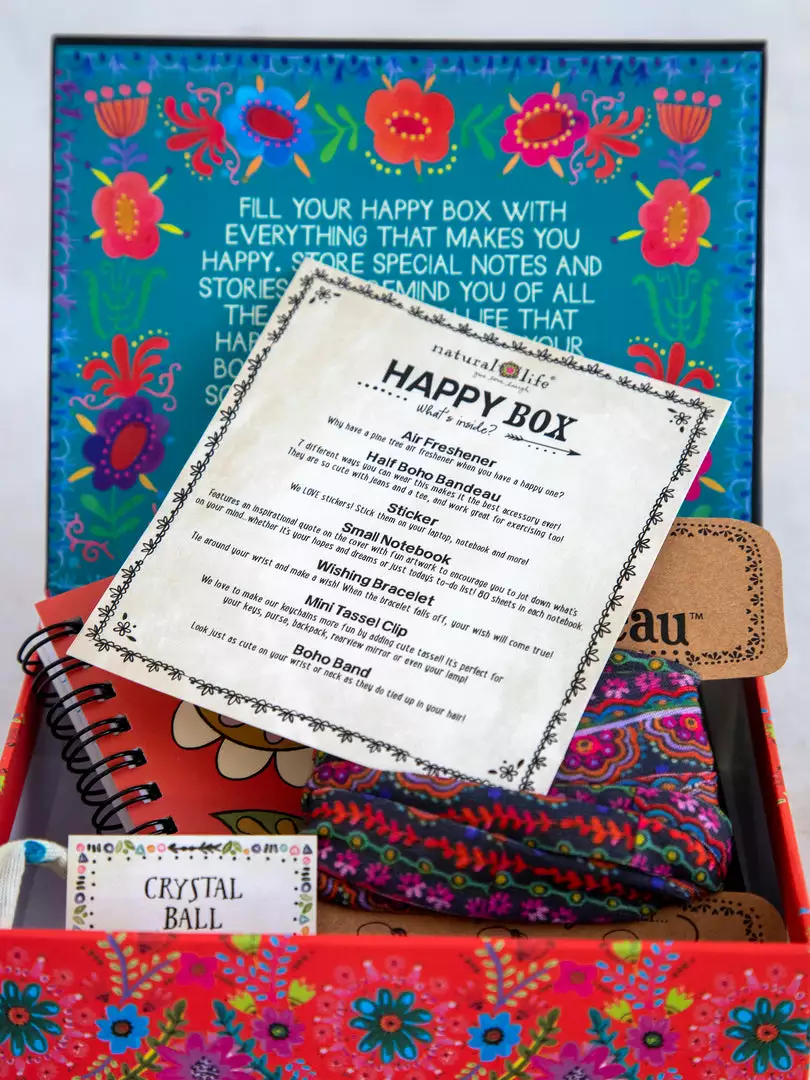 FILL YOUR HAPPY BOX WITH
EVERYTHING THAT MAKES YOU
HAPPY. STORE SPECIAL NOTES AND
STORIES REMIND YOU OF ALL
THE LIFE THAT
natural life®
give love laugh
HAPPY BOX
What's inside?
Air Freshener
Why have a pine tree air freshener when you have a happy one?
Half Boho Bandeau
7 different ways you can wear this makes it the best accessory ever!
They are so cute with jeans and a tee, and work great for exercising too!
Sticker
We LOVE stickers! Stick them on your laptop, notebook and more!
Small Notebook
Features an inspirational quote on the cover with fun artwork to encourage you to jot down what's
on your mind...whether it's your hopes and dreams or just today's to-do list! 80 Sheets in each notebook.
Wishing Bracelet
Tie around your wrist and make a wish! When the bracelet falls off, your wish will come true!
Mini Tassel Clip
We love to make our keychains more fun by adding cute tassel! It's perfect for
your keys, purse, backpack, rearview mirror or even your lamp!
Boho Band
Look just as cute on your wrist or neck as they do tied up in your hair!
eau™
CRYSTAL
BALL